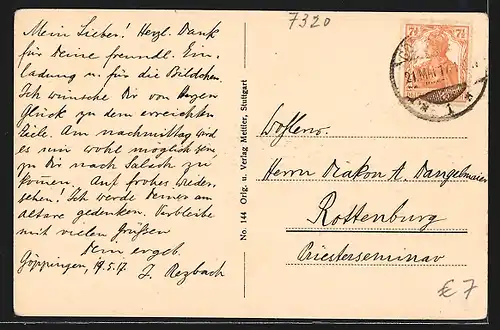 7320
Mein Lieber! Herzl. Dank
für Deine freundl. Ein-
ladung u. für die Bildchen.
Ich wünsche Dir von Herzen
Glück zu dem erreichten
Ziele. Am Nachmittag wird
es mir wohl möglich sein,
zu Dir nach Salach zu
kommen. Auf frohes Wieder-
sehen. Ich werde Deiner am
Altare gedenken. Verbleibe
mit vielen Grüßen
Dein ergeb.
Göppingen, 19.5.17. J. Rezbach
No. 144 Orig. u. Verlag Mettler, Stuttgart
7½ 7½
21 MAI 17
* 1 *
Hochw.
Herrn Diakon A. Dangelmaier
Rottenburg
Priesterseminar
€ 7